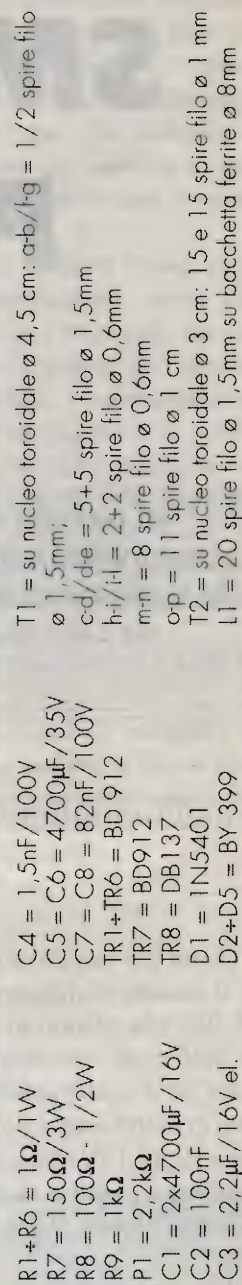 R1÷R6 = 1Ω/1W
R7 = 150Ω/3W
R8 = 100Ω - 1/2W
R9 = 1kΩ
P1 = 2,2kΩ
C1 = 2x4700µF/16V
C2 = 100nF
C3 = 2,2µF/16V el.
C4 = 1,5nF/100V
C5 = C6 = 4700µF/35V
C7 = C8 = 82nF/100V
TR1÷TR6 = BD 912
TR7 = BD912
TR8 = DB137
D1 = 1N5401
D2÷D5 = BY 399
T1 = su nucleo toroidale ø 4,5 cm: a-b/f-g = 1/2 spire filo
ø 1,5mm;
c-d/d-e = 5+5 spire filo ø 1,5mm
h-i/i-l = 2+2 spire filo ø 0,6mm
m-n = 8 spire filo ø 0,6mm
o-p = 11 spire filo ø 1 cm
T2 = su nucleo toroidale ø 3 cm: 15 e 15 spire filo ø 1 mm
L1 = 20 spire filo ø 1,5mm su bacchetta ferrite ø 8mm